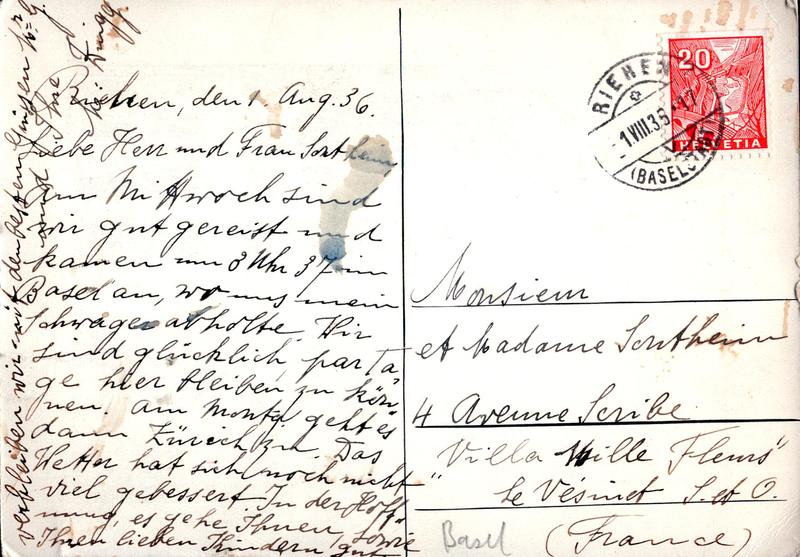 Riehen, den 1 Aug. 36.
Liebe Herr und Frau Sontheim,
am Mittwoch sind
wir gut gereist und
kamen um 3 Uhr 37 in
Basel an, wo uns mein
Schwager abholte. Wir
sind glücklich par Ta-
ge hier bleiben zu kön-
nen. Am Montg. geht es
dann Zürich zu. Das
Wetter hat sich noch nicht
viel gebessert. In der Hoff-
nung, es gehe Ihnen, sowie
Ihren lieben Kindern, gut
verbleiben wir mit den besten Grüssen
und
Monsieur
et Madame Sontheim
4 Avenue Scribe
"Villa Mille Fleurs"
Le Vésinet S. et O.
(France)
Basel
20
HELVETIA
RIEHEN
1.VIII.36
(BASELSTADT)